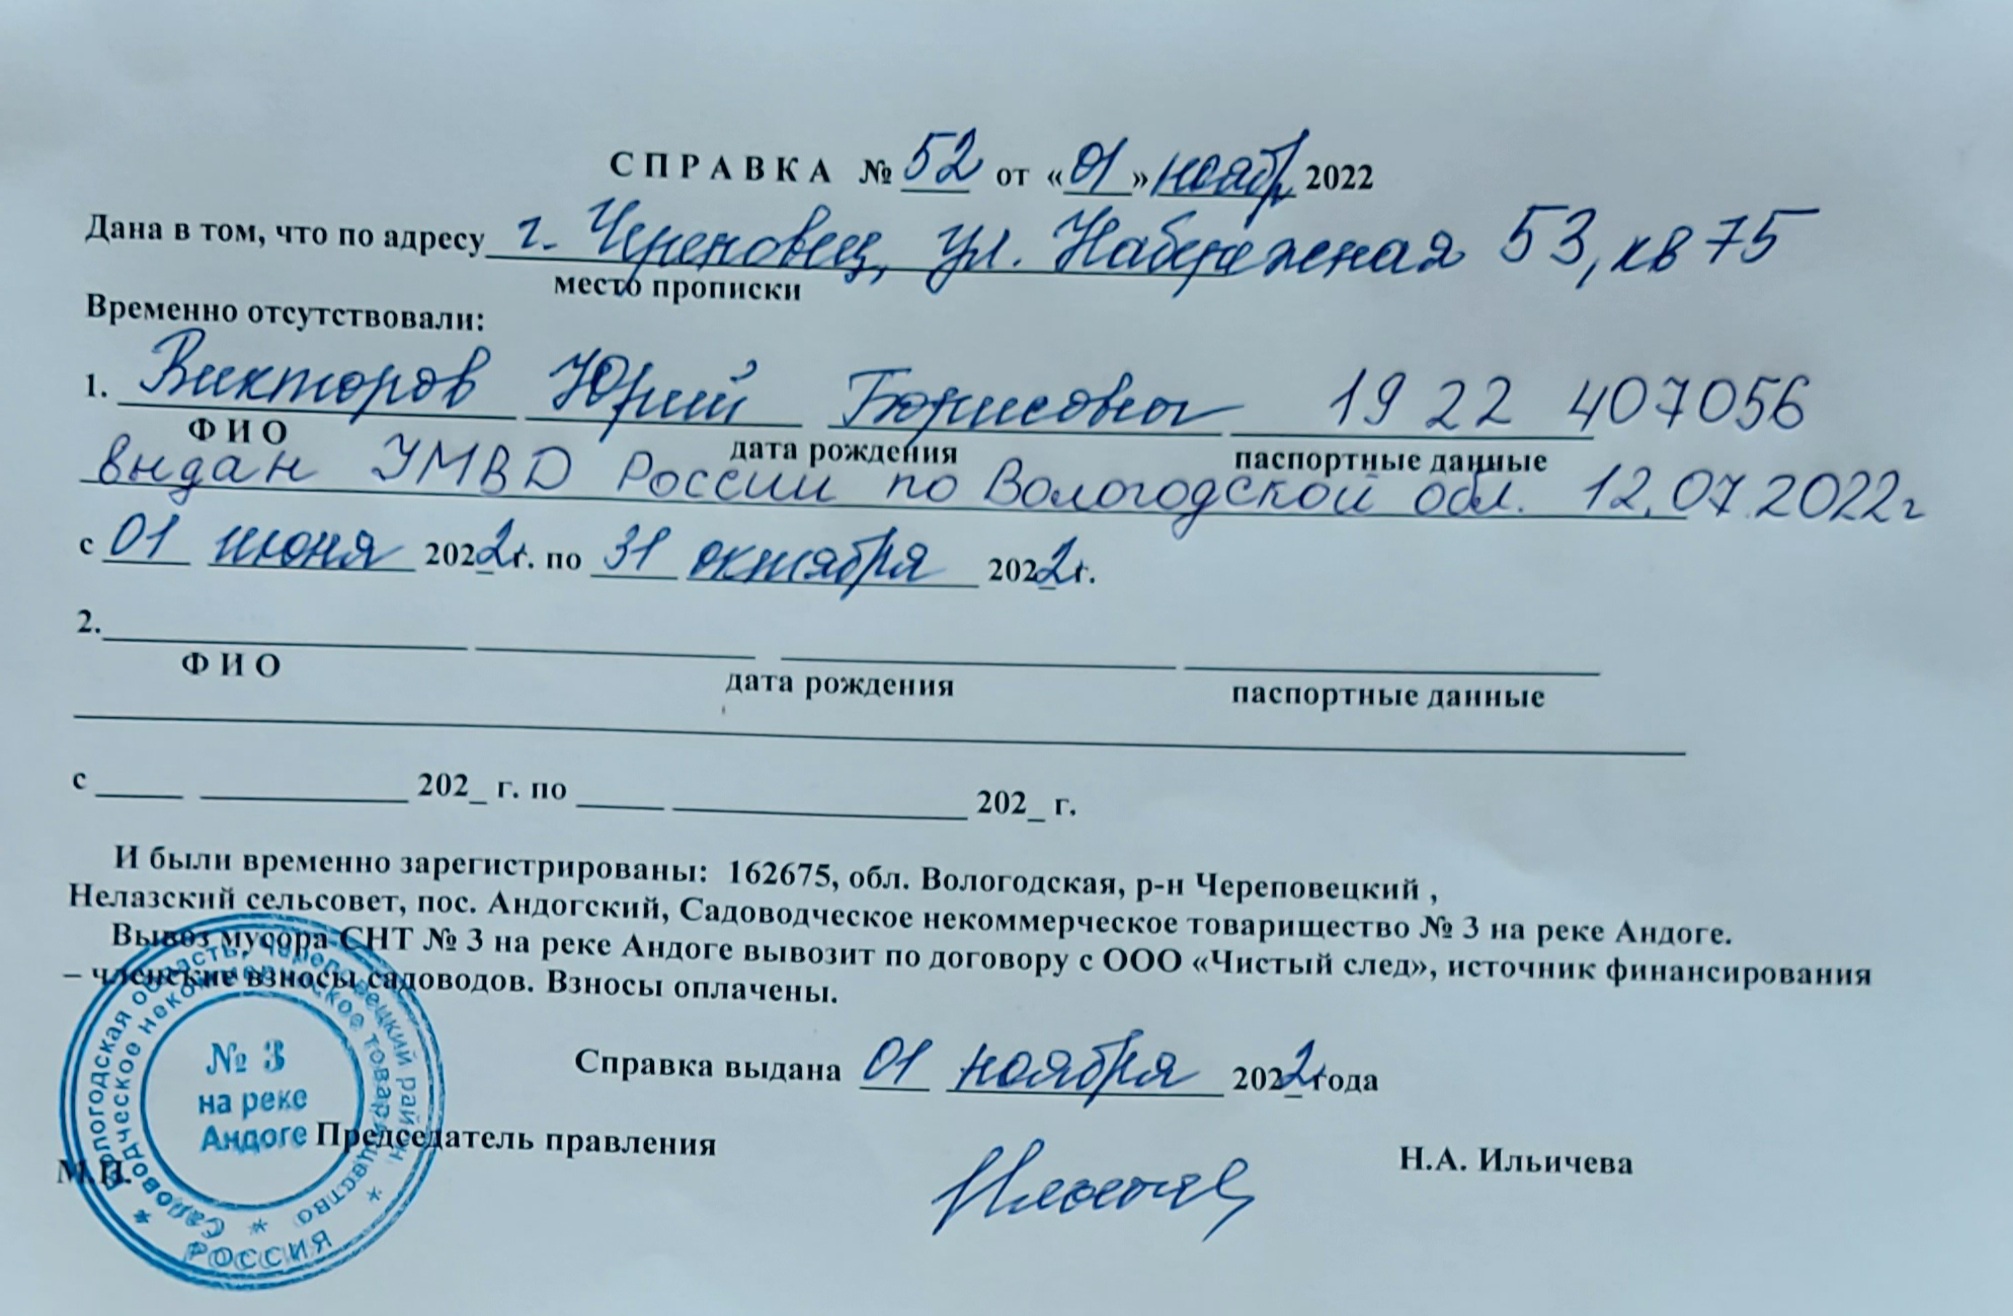 СПРАВКА № 52 от «01» ноябр 2022
Дана в том, что по адресу г. Череповец, ул. Набережная 53, кв 75
место прописки
Временно отсутствовали:
1. Викторов Юрий Борисович 19 22 407056
Ф И О дата рождения паспортные данные
выдан УМВД России по Вологодской обл. 12.07.2022г
с 01 июня 2022г. по 31 октября 2022г.
2.
Ф И О дата рождения паспортные данные
с 202_ г. по 202_ г.
И были временно зарегистрированы: 162675, обл. Вологодская, р-н Череповецкий ,
Нелазский сельсовет, пос. Андогский, Садоводческое некоммерческое товарищество № 3 на реке Андоге.
Вывоз мусора СНТ № 3 на реке Андоге вывозит по договору с ООО «Чистый след», источник финансирования
– членские взносы садоводов. Взносы оплачены.
Справка выдана 01 ноября 2022 года
Председатель правления Н.А. Ильичева
М.П.
Вологодская область, Череповецкий район
Садоводческое некоммерческое товарищество
№ 3
на реке
Андоге
РОССИЯ